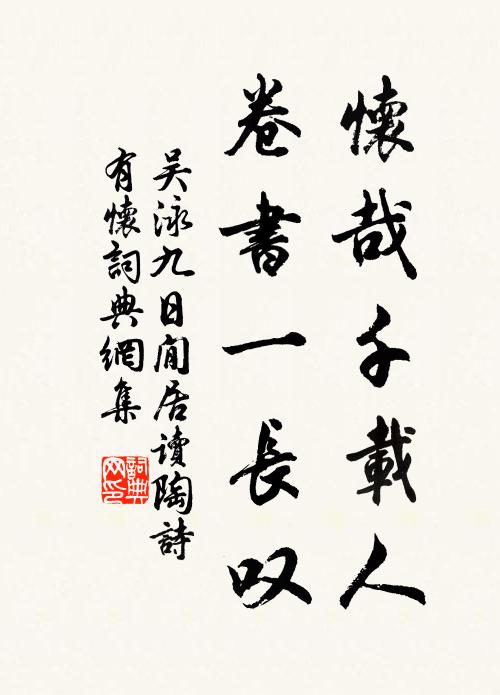 懷哉千載人
卷書一長叹
吴泳九日閒居讀陶詩
有懷詞典網集
詞典網印